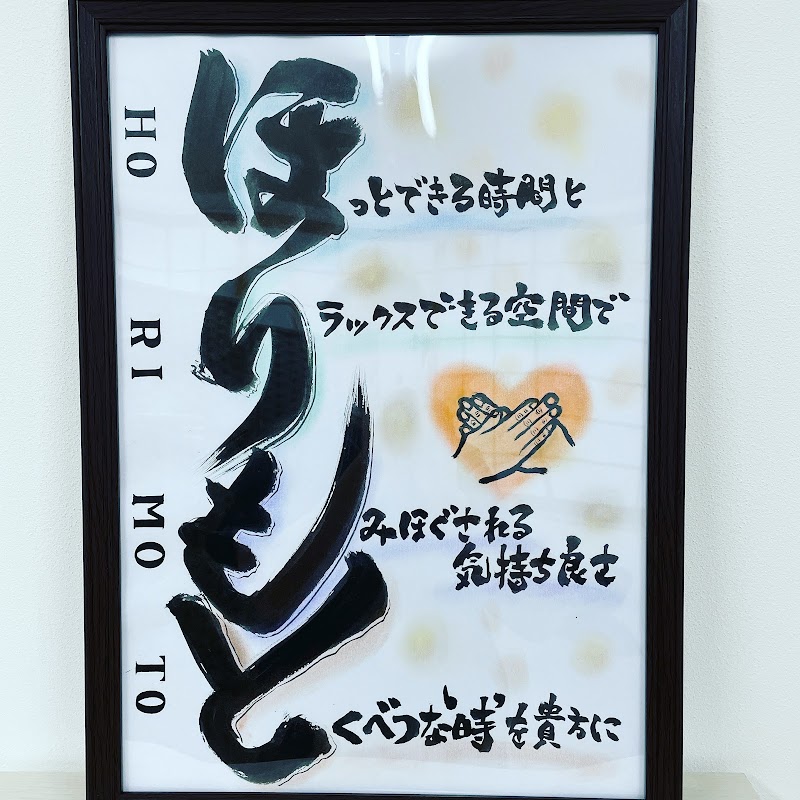 ほりもと
HO RI MO TO
っとできる時間と
ラックスできる空間で
みほぐされる
気持ち良さ
くべつな‘時’を貴方に